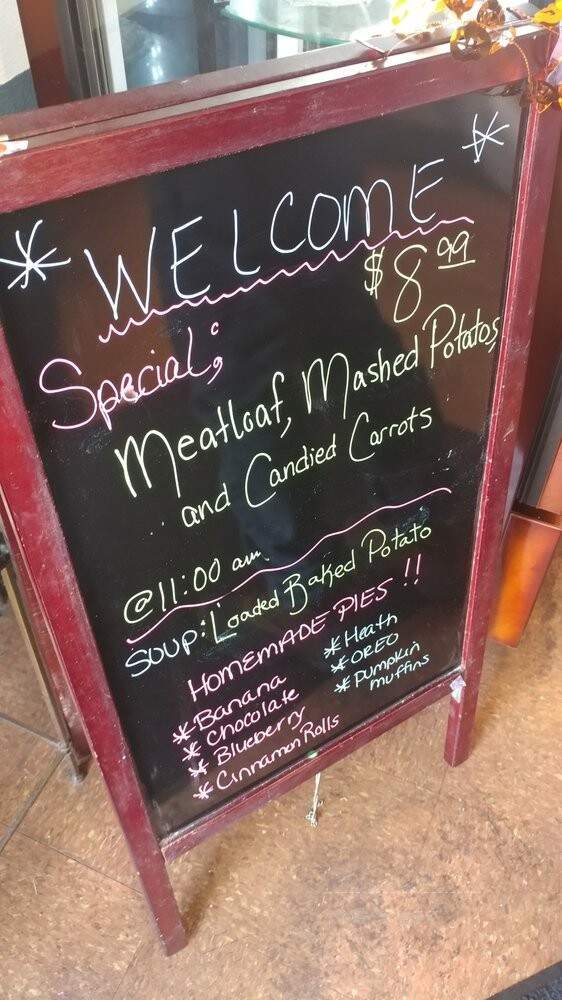 * WELCOME *
$8.99
Special;
Meatloaf, Mashed Potatos,
and Candied Carrots
@11:00 am
SOUP: Loaded Baked Potato
HOMEMADE PIES!!
* Banana
* Chocolate
* Blueberry
* Cinnamon Rolls
* Heath
* OREO
* Pumpkin
muffins